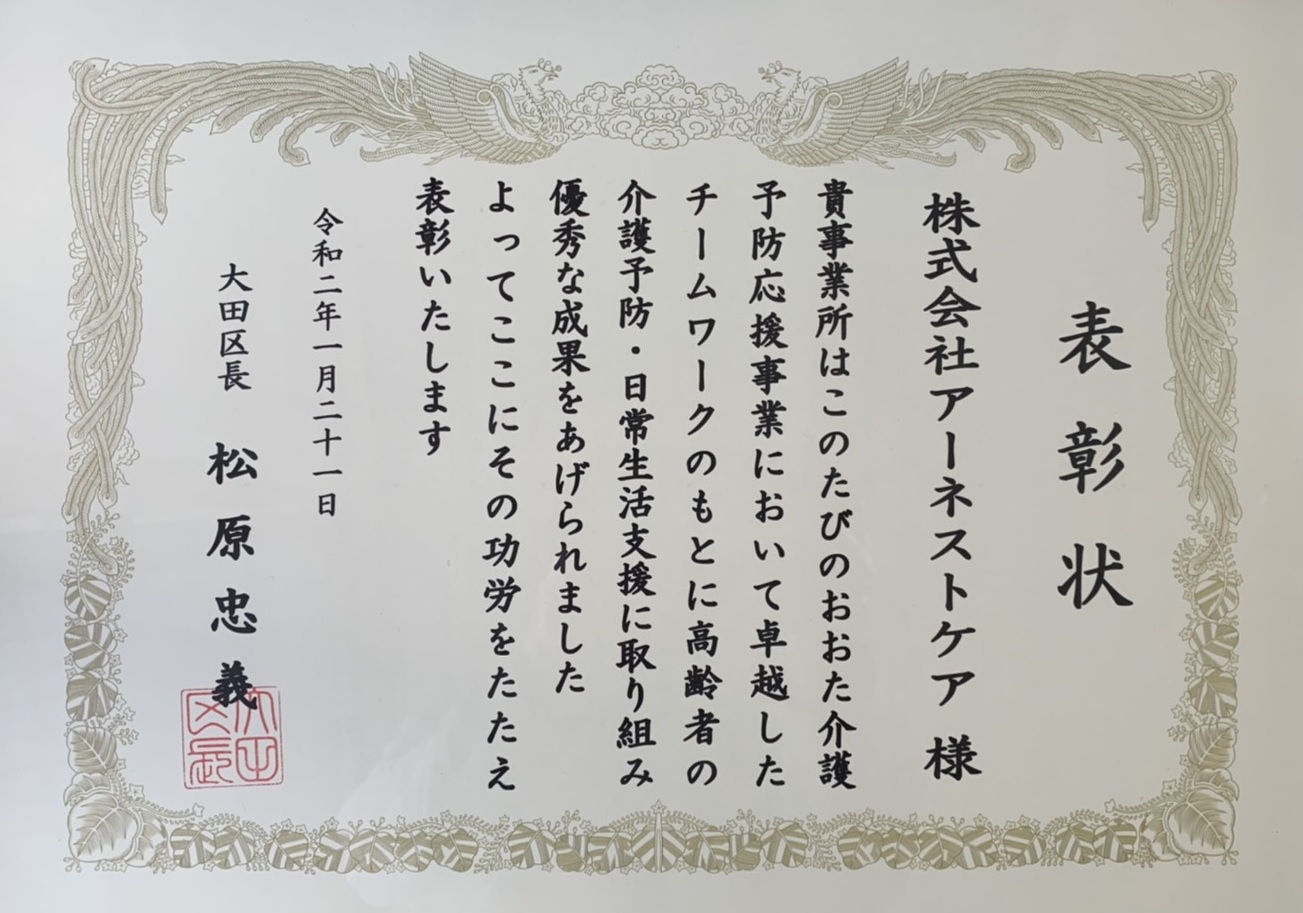 表彰状
株式会社アーネストケア 様
貴事業所はこのたびのおおた介護
予防応援事業において卓越した
チームワークのもとに高齢者の
介護予防・日常生活支援に取り組み
優秀な成果をあげられました
よってここにその功労をたたえ
表彰いたします
令和二年一月二十一日
大田区長 松原忠義
大田区長